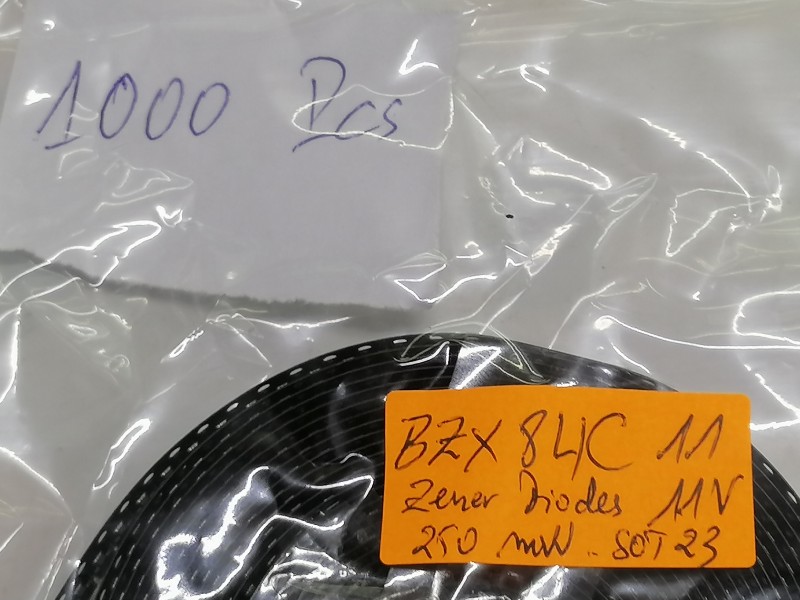 1000 Pcs
BZX 84C 11
Zener Diodes 11V
250 mW - SOT 23